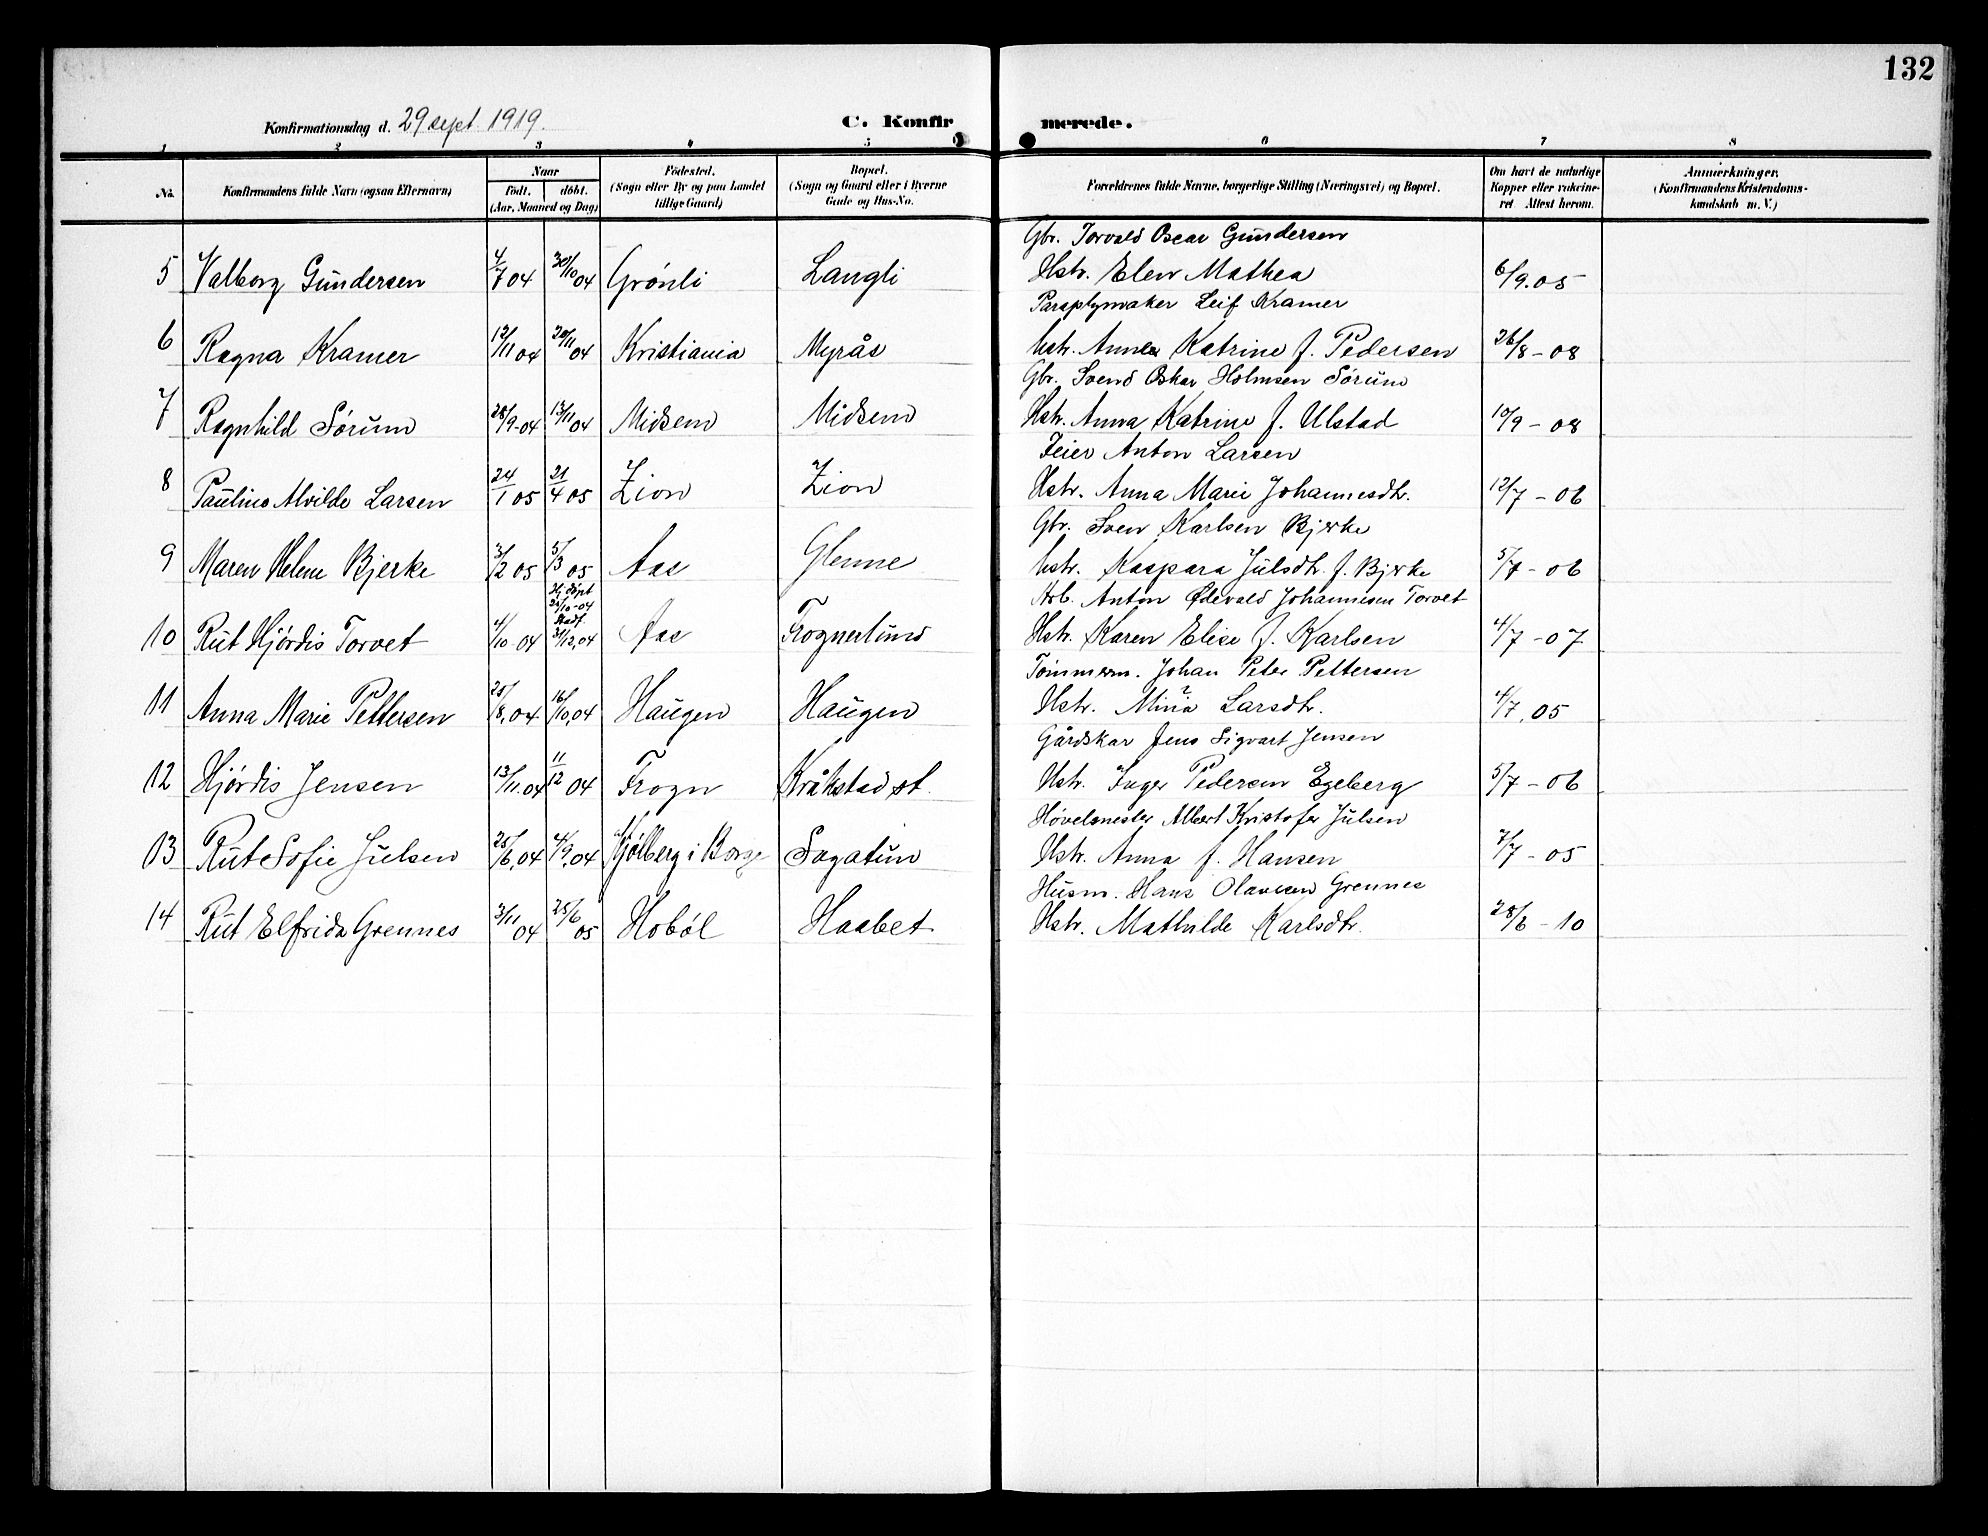 132
Konfirmationsdag d. 29 sept. 1919.
C. Konfirmerede.
1 2 3 4 5 6 7 8
No. Konfirmandens fulde Navn (ogsaa Efternavn) Naar født. døbt. (Aar, Maaned og Dag) Fødested. (Sogn eller By og paa Landet tillige Gaard) Bopæl. (Sogn og Gaard eller i Byerne Gade og Hus-No. Forældrenes fulde Navne, borgerlige Stilling (Næringsvei) og Bopæl. Om havt de naturlige Kopper eller vakcineret. Attest herom. Anmærkninger. (Konfirmandens Kristendomskundskab m. V.)
Gbr. Torvald Oscar Gundersen
5 Valborg Gundersen 4/7 04 30/10 04 Grønli Langli Hstr. Elen Mathea 6/9. 05
Paraplymaker Leif Kramer
6 Ragna Kramer 12/11 04 20/11 04 Kristiania Myrås hstr. Anna Katrine f. Pedersen 26/8 - 08
Gbr. Svend Oskar Holmsen Sørum
7 Ragnhild Sørum 28/9-04 13/11 04 Midsem Midsem Hstr. Anna Katrine f. Ulstad 10/9 - 08
Feier Anton Larsen
8 Pauline Alvilde Larsen 24/1 05 21/4 05 Zion Zion Hstr. Anna Marie Johannesdtr. 12/7 - 06
Gbr. Sven Karlsen Bjerke
9 Maren Helene Bjerke 3/2 05 5/3 05 Aas Glenne hstr. Kaspara Julsdtr. f. Bjerke 5/7 - 06
Hj. døpt 24/10-04 Arb. Anton Ødevald Johannesen Torvet
10 Rut Hjørdis Torvet 4/10 04 Stadf. 31/12,04 Aas Frognerlund Hstr. Karen Elise f. Karlsen 4/7 - 07
Tømmerm. Johan Peter Pettersen
11 Anna Marie Pettersen 25/8,04 16/10,04 Haugen Haugen Hstr. Mina Larsdtr. 4/7, 05
Gårdskar Jens Sigvart Jensen
12 Hjørdis Jensen 13/11.04 11/12 04 Frogn Kråkstad st. Hstr. Inger Pedersen Egeberg 5/7 - 06
Høvelmester Albert Kristofer Julsen
13 Rut Sofie Julsen 25/6,04 4/9,04 Hjølberg i Borge Sagatun Hstr. Anna f. Hansen 7/7 - 05
Husm. Hans Olausen Grennes
14 Rut Elfrida Grennes 3/11 04 25/6 05 Hobøl Haabet Hstr. Mathilde Karlsdtr. 28/6 - 10